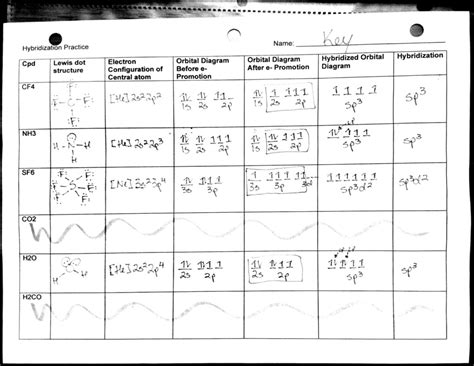 Name: Key
Hybridization Practice
Cpd Lewis dot structure Electron Configuration of Central atom Orbital Diagram Before e- Promotion Orbital Diagram After e- Promotion Hybridized Orbital Diagram Hybridization
CF4 [He]2s²2p² 1s 2s 2p 1s 2s 2p sp³ sp³
NH3 H N H H [He]2s²2p³ 1s 2s 2p 1s 2s 2p sp³ sp³
SF6 [Ne]3s²3p⁴ 3s 3p 3s 3p 3d sp³d² sp³d²
CO2
H2O H H [He]2s²2p⁴ 2s 2p 2s 2p sp³ sp³
H2CO